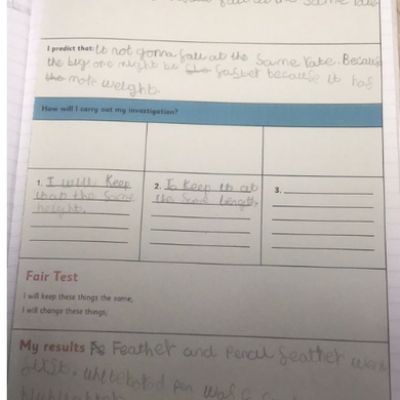 fall at the same rate
I predict that: Is not gonna fall at the same rate. Because
the big one might be faster because it has
the more weight.
How will I carry out my investigation?
1. I will Keep
the same
height.
2. To Keep it at
the same length.
3.
Fair Test
I will keep these things the same,
I will change these things,
My results Feather and Pencil feather went
first. whiteboard pen was